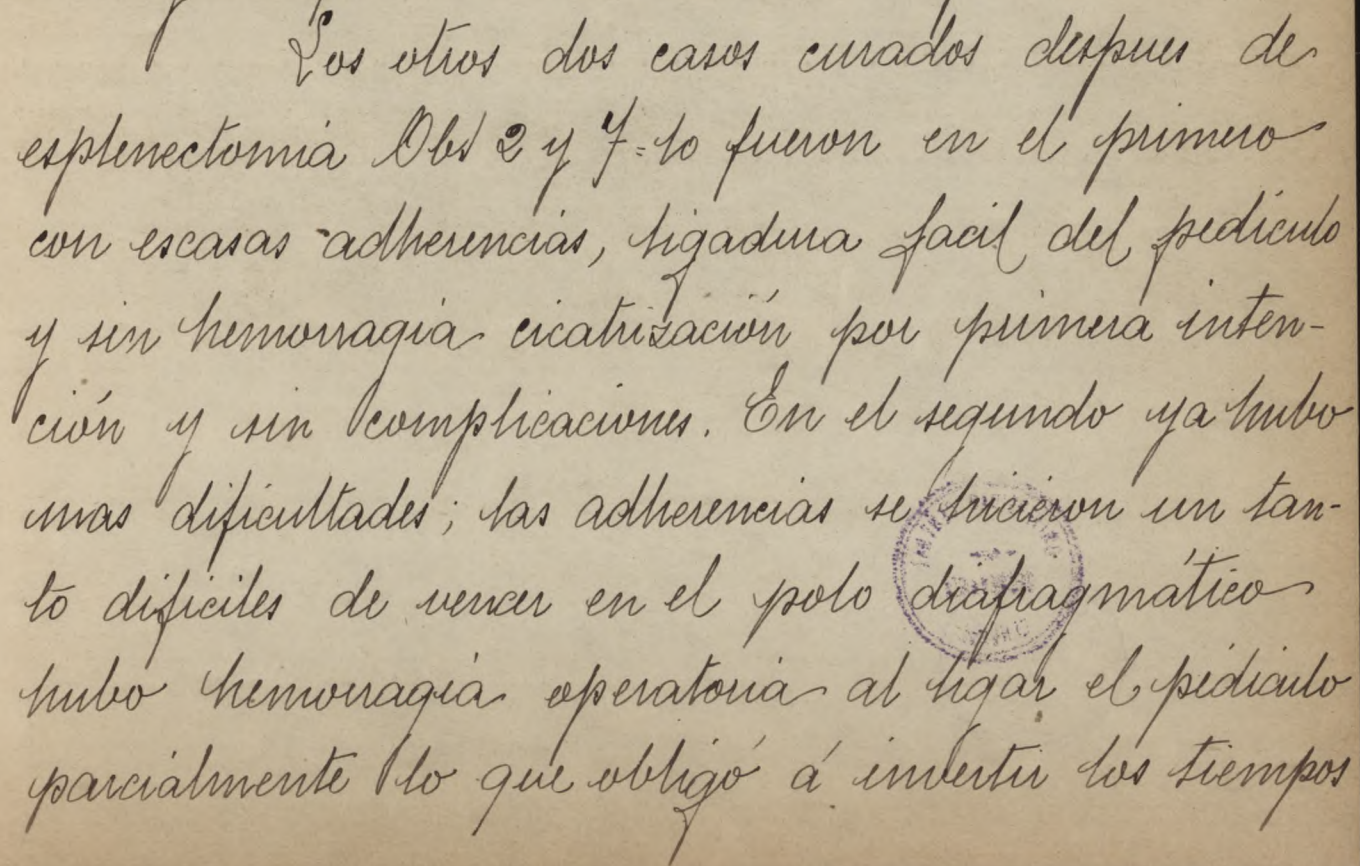 Los otros dos casos curados despues de
esplenectomia Obs 2 y 7=lo fueron en el primero
con escasas adherencias, ligadura facil del pediculo
y sin hemorragia cicatrización por primera inten-
ción y sin complicaciones. En el segundo ya hubo
mas dificultades; las adherencias se hicieron un tan-
to dificiles de vencer en el polo diafragmático
hubo hemorragia operatoria al ligar el pediculo
parcialmente lo que obligó á invertir los tiempos